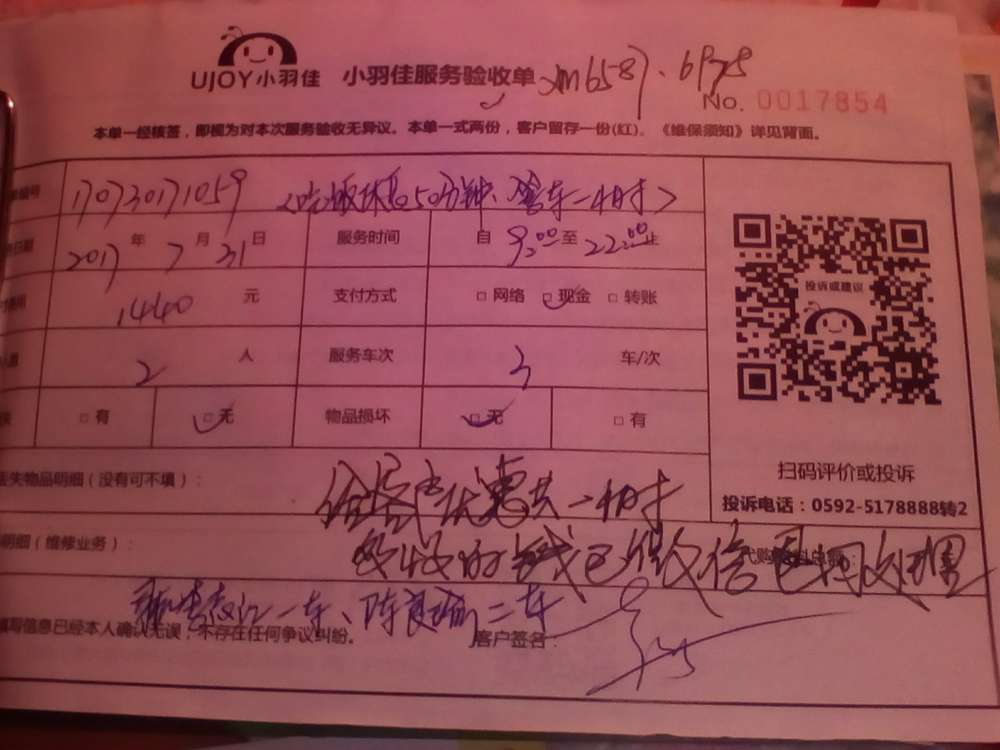 UJOY小羽佳 小羽佳服务验收单 xm6587、6875
No. 0017854
本单一经核签，即视为对本次服务验收无异议。本单一式两份，客户留存一份(红)。《维保须知》详见背面。
编号 170730171059 （吃饭休息50分钟、等车一小时）
日期 2017 年 7 月 31 日 服务时间 自 9:00 至 22:00 止
1440 元 支付方式 □ 网络 □ 现金 □ 转账
2 人 服务车次 3 车/次
□ 有 □ 无 物品损坏 □ 无 □ 有
投诉或建议
扫码评价或投诉
投诉电话：0592-5178888转2
丢失物品明细（没有可不填）：
给客户优惠共一小时
明细（维修业务）：
多收的钱已微信退回处理
一车、陈良 二车
填写信息已经本人确认无误，不存在任何争议纠纷。 客户签名：